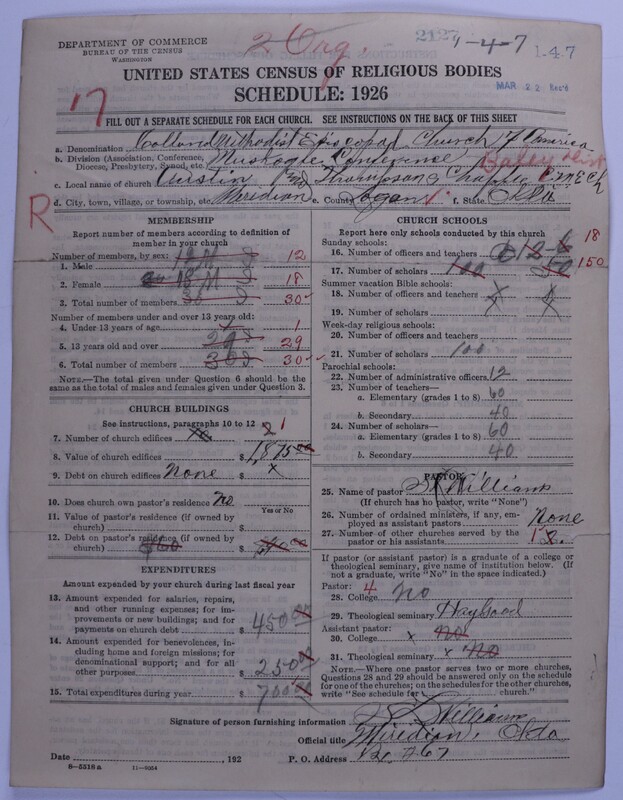 DEPARTMENT OF COMMERCE
BUREAU OF THE CENSUS
WASHINGTON
2 Org.
1-4-7
1-4-7
MAR 22 Rec'd
UNITED STATES CENSUS OF RELIGIOUS BODIES
SCHEDULE: 1926
17
FILL OUT A SEPARATE SCHEDULE FOR EACH CHURCH. SEE INSTRUCTIONS ON THE BACK OF THIS SHEET
a. Denomination Collord Methodist Episcopal Church of America
b. Division (Association, Conference, Diocese, Presbytery, Synod, etc.) Muskogee Conference
c. Local name of church Austin and Thompson Chapple C.M.E. Ch
R
d. City, town, village, or township, etc. Meridian e. County Logan f. State Okla
MEMBERSHIP
Report number of members according to definition of
member in your church
Number of members, by sex:
1. Male 12
2. Female 18
3. Total number of members 30
Number of members under and over 13 years old:
4. Under 13 years of age 1
5. 13 years old and over 29
6. Total number of members 30
NOTE.—The total given under Question 6 should be the
same as the total of males and females given under Question 3.
CHURCH BUILDINGS
See instructions, paragraphs 10 to 12
7. Number of church edifices 2 1
8. Value of church edifices $ 1,875.00
9. Debt on church edifices None $ x
10. Does church own pastor's residence? No
Yes or No
11. Value of pastor's residence (if owned by
church) $
12. Debt on pastor's residence (if owned by
church) $
EXPENDITURES
Amount expended by your church during last fiscal year
13. Amount expended for salaries, repairs,
and other running expenses; for im-
provements or new buildings; and for
payments on church debt $ 450.00
14. Amount expended for benevolences, in-
cluding home and foreign missions; for
denominational support; and for all
other purposes $ 250.00
15. Total expenditures during year $ 700.00
CHURCH SCHOOLS
Report here only schools conducted by this church
Sunday schools:
16. Number of officers and teachers 12 6 18
17. Number of scholars 100 50 150
Summer vacation Bible schools:
18. Number of officers and teachers x x
19. Number of scholars x x
Week-day religious schools:
20. Number of officers and teachers
21. Number of scholars 100
Parochial schools:
22. Number of administrative officers 12
23. Number of teachers—
a. Elementary (grades 1 to 8) 60
b. Secondary 40
24. Number of scholars—
a. Elementary (grades 1 to 8) 60
b. Secondary 40
PASTOR
25. Name of pastor Williams
(If church has no pastor, write "None")
26. Number of ordained ministers, if any, em-
ployed as assistant pastors None
27. Number of other churches served by the
pastor or his assistants 1
If pastor (or assistant pastor) is a graduate of a college or
theological seminary, give name of institution below. (If
not a graduate, write "No" in the space indicated.)
Pastor: 4
28. College No
29. Theological seminary Haygood
Assistant pastor:
30. College x No
31. Theological seminary x No
NOTE.—Where one pastor serves two or more churches,
Questions 28 and 29 should be answered only on the schedule
for one of the churches; on the schedules for the other churches,
write "See schedule for church."
Signature of person furnishing information Williams
Official title Miridian, Okla
Date , 192
P. O. Address 267
8-5318 a
11-9354